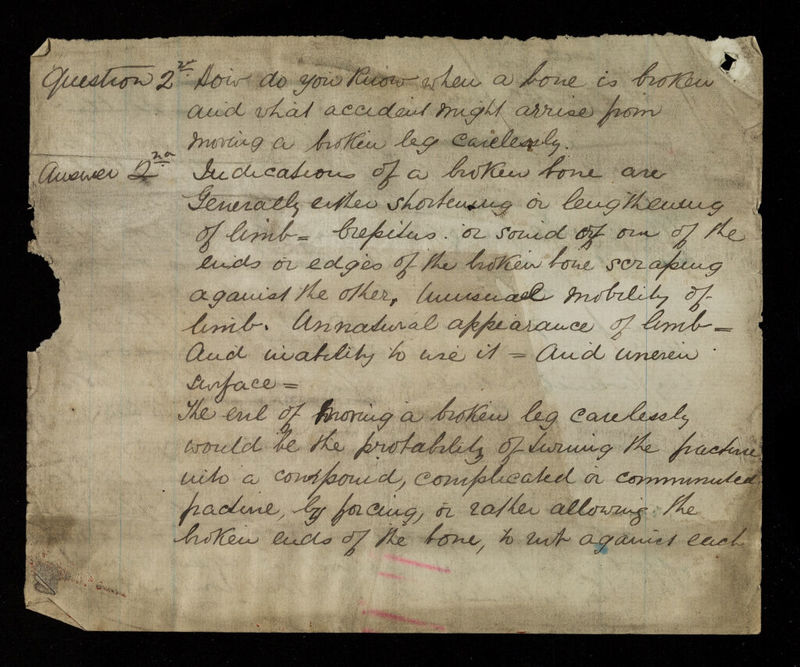 Question 2nd How do you know when a bone is broken
and what accident might arrise from
moving a broken leg carelessly.
Answer 2nd Indications of a broken bone are
Generally either shortening or lengthening
of limb = Crepitus. or sound of one of the
ends or edges of the broken bone scraping
against the other, Unusual mobility of
limb. Unnatural appearance of limb =
And inability to use it = And uneven
surface =
The evil of moving a broken leg carelessly
would be the probability of turning the fracture
into a compound, complicated or comminuted
fracture, by forcing, or rather allowing the
broken ends of the bone, to rub against each